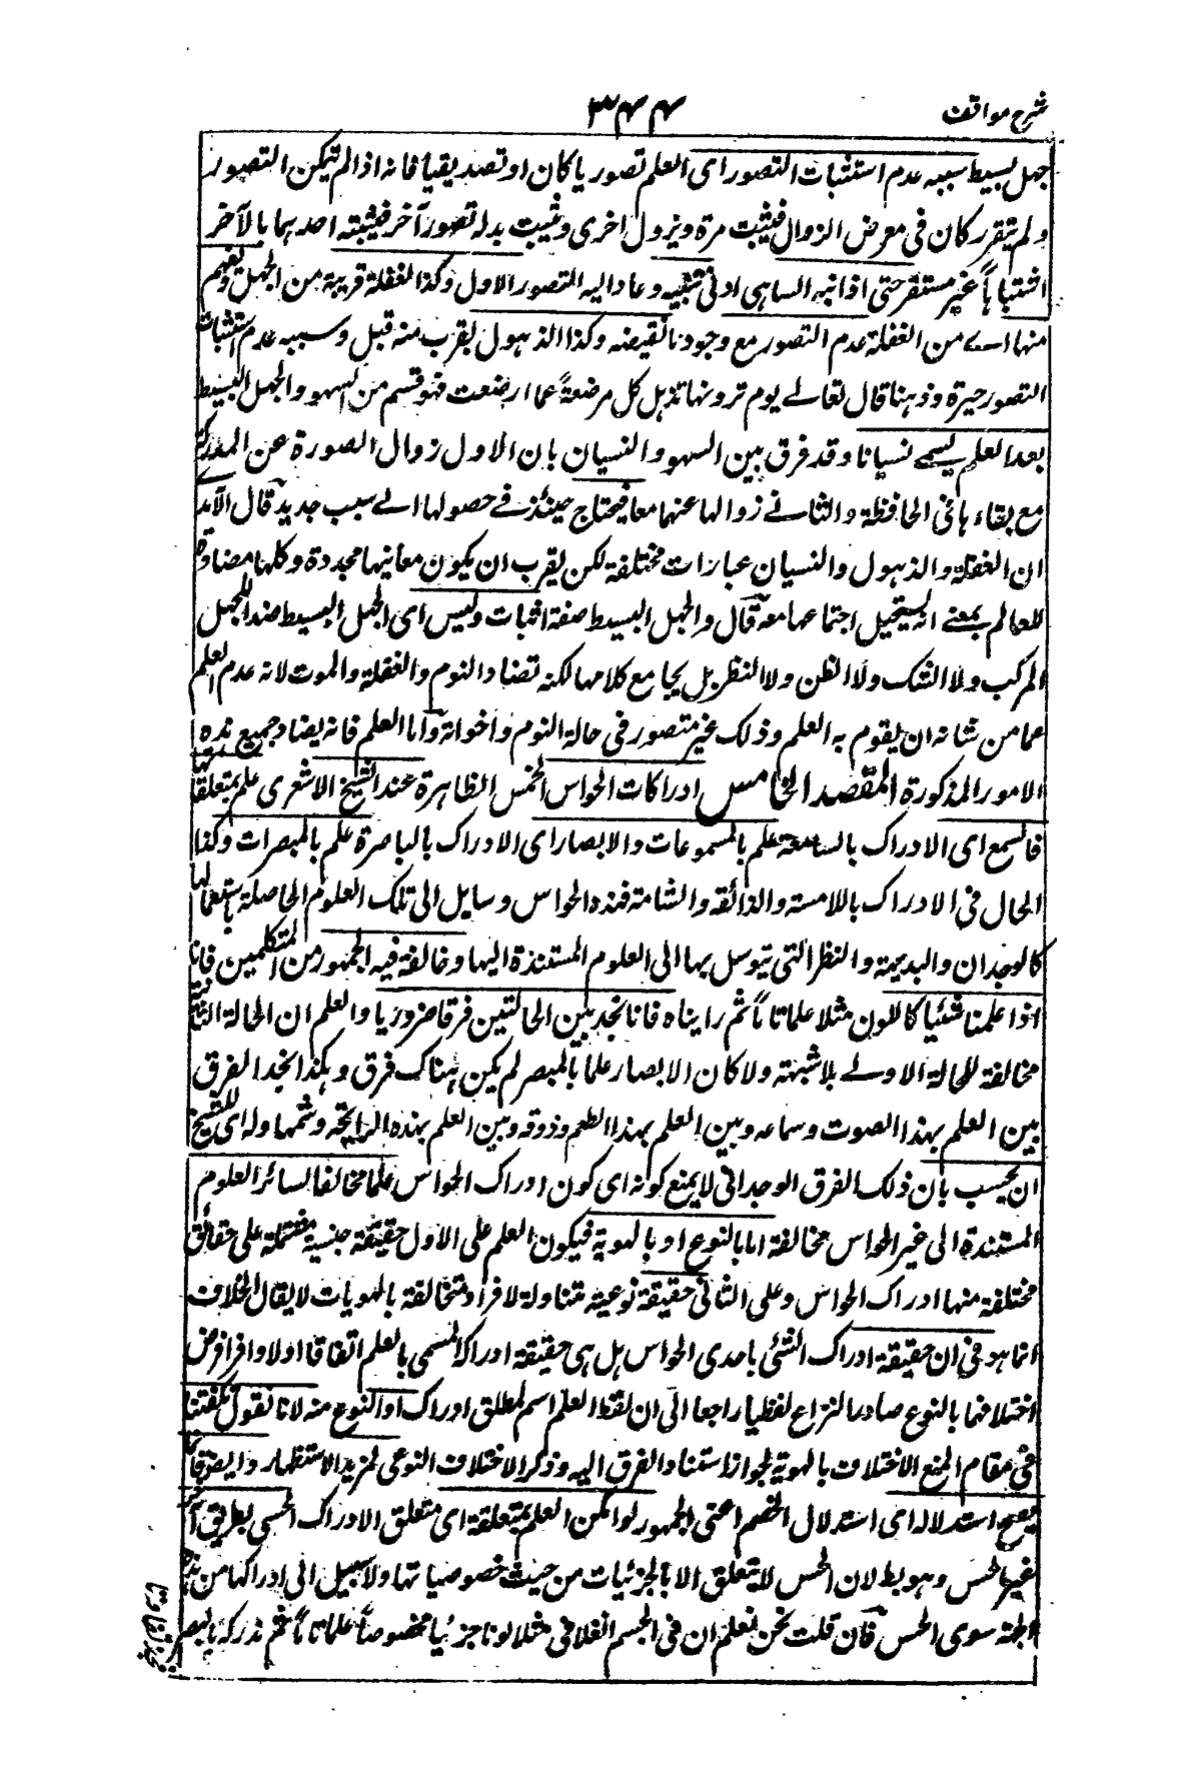 شرح مواقف
٣٤٤
جهل بسيط سببه عدم استثبات التصور اى العلم تصوريا كان او تصديقيا فانه اذا لم يتمكن التصور
ولم يتقرر كان فى معرض الزوال فيثبت مرة ويزول اخرى ويثبت بدله تصور آخر فيشبته احدهما بالآخر
اشتباها غير مستقر حتى اذا نبه الساهى ادنى تنبيه وعاد اليه التصور الاول وكذا الغفلة قريبة من الجهل ويفهم
منها اے من الغفلة عدم التصور مع وجود ما يقتضيه وكذا الذهول يقرب منه قبل وسببه عدم استثبات
التصور حيرة ودهشا قال تعالے يوم ترونها تذهل كل مرضعة عما ارضعت فهو قسم من السهو والجهل البسيط
بعد العلم يسمے نسيانا وقد فرق بين السهو والنسيان بان الاول زوال الصورة عن المدركة
مع بقاءها فى الحافظة والثانے زوالها عنهما معا فيحتاج حينئذ فے حصولها الے سبب جديد قال الآمدے
ان الغفلة والذهول والنسيان عبارات مختلفة لكن يقرب ان يكون معانيها متحدة وكلها مضادة
للعالم بمعنے انه يستحيل اجتماعها معه قال والجهل البسيط صفة اثبات وليس اى الجهل البسيط ضدا للجهل
المركب ولا الشك ولا الظن ولا النظر بل يجامع كلا منها لكنه تضاد النوم والغفلة والموت لانه عدم العلم
عما من شانه ان يقوم به العلم وذلك غير متصور فى حالة النوم واخواته واما العلم فانه يضاد جميع هذه
الامور المذكورة المقصد الخامس ادراكات الحواس الخمس الظاهرة عند الشيخ الاشعرى علم بمتعلقاتها
فالسمع اى الادراك بالسامعة علم بالمسموعات والابصار اى الادراك بالباصرة علم بالمبصرات وكذا
الحال فى الادراك باللامسة والذائقة والشامة فهذه الحواس وسايل الى تلك العلوم الحاصلة باستعمالها
كالوجدان والبديهة والنظر التى يتوسل بها الى العلوم المستندة اليها وخالفه فيه الجمهور من المتكلمين فانا
اذا علمنا شيئا كاللون مثلا علما تاما ثم رايناه فانا نجد بين الحالتين فرقا ضروريا والعلم ان الحالة الثانية
مخالفة للحالة الاولے بلا شبهة ولا كان الابصار علما بالمبصر لم يكن هناك فرق وهكذا نجد الفرق
بين العلم بهذا الصوت وسماعه وبين العلم بهذا الطعم وذوقه وبين العلم بهذه الرايحة وشمها وله اى للشيخ
ان يجيب بان ذلك الفرق الوجدانى لا يمنع كونه اى كون ادراك الحواس علما مخالفا لسائر العلوم
المستندة الى غير الحواس مخالفة اما بالنوع او بالهوية فيكون العلم على الاول حقيقة جنسية مشتملة على حقائق
مختلفة منها ادراك الحواس وعلى الثانى حقيقة نوعية متناولة لافراد متخالفة بالهويات لا يقال الخلاف
انما هو فى ان حقيقة ادراك الشئى باحدى الحواس هل هى حقيقة ادراكه المسمى بالعلم اتفاقا اولا واذا فرض
اختلافهما بالنوع صار النزاع لفظيا راجعا الى ان لفظ العلم اسم لمطلق ادراك او النوع منه لانا نقول يكفينا
فى مقام المنع الاختلاف بالهوية لجواز استناد الفرق اليه وذكر الاختلاف النوعى لمزيد الاستظهار وايضا فانما
يصح استدلاله اى استدلال الخصم اعنى الجمهور لو امكن العلم بمتعلقه اى متعلق الادراك الحسى بطريق آخر
غير الحس وهو بط لان الحس لا يتعلق الا بالجزئيات من حيث خصوصياتها ولا سبيل الى ادراكها من هذه
الجهة سوى الحس فان قلت نحن نعلم ان فى الجسم الفلانى مثلا لونا جزئيا مخصوصا علما تاما ثم ندركه بالبصر